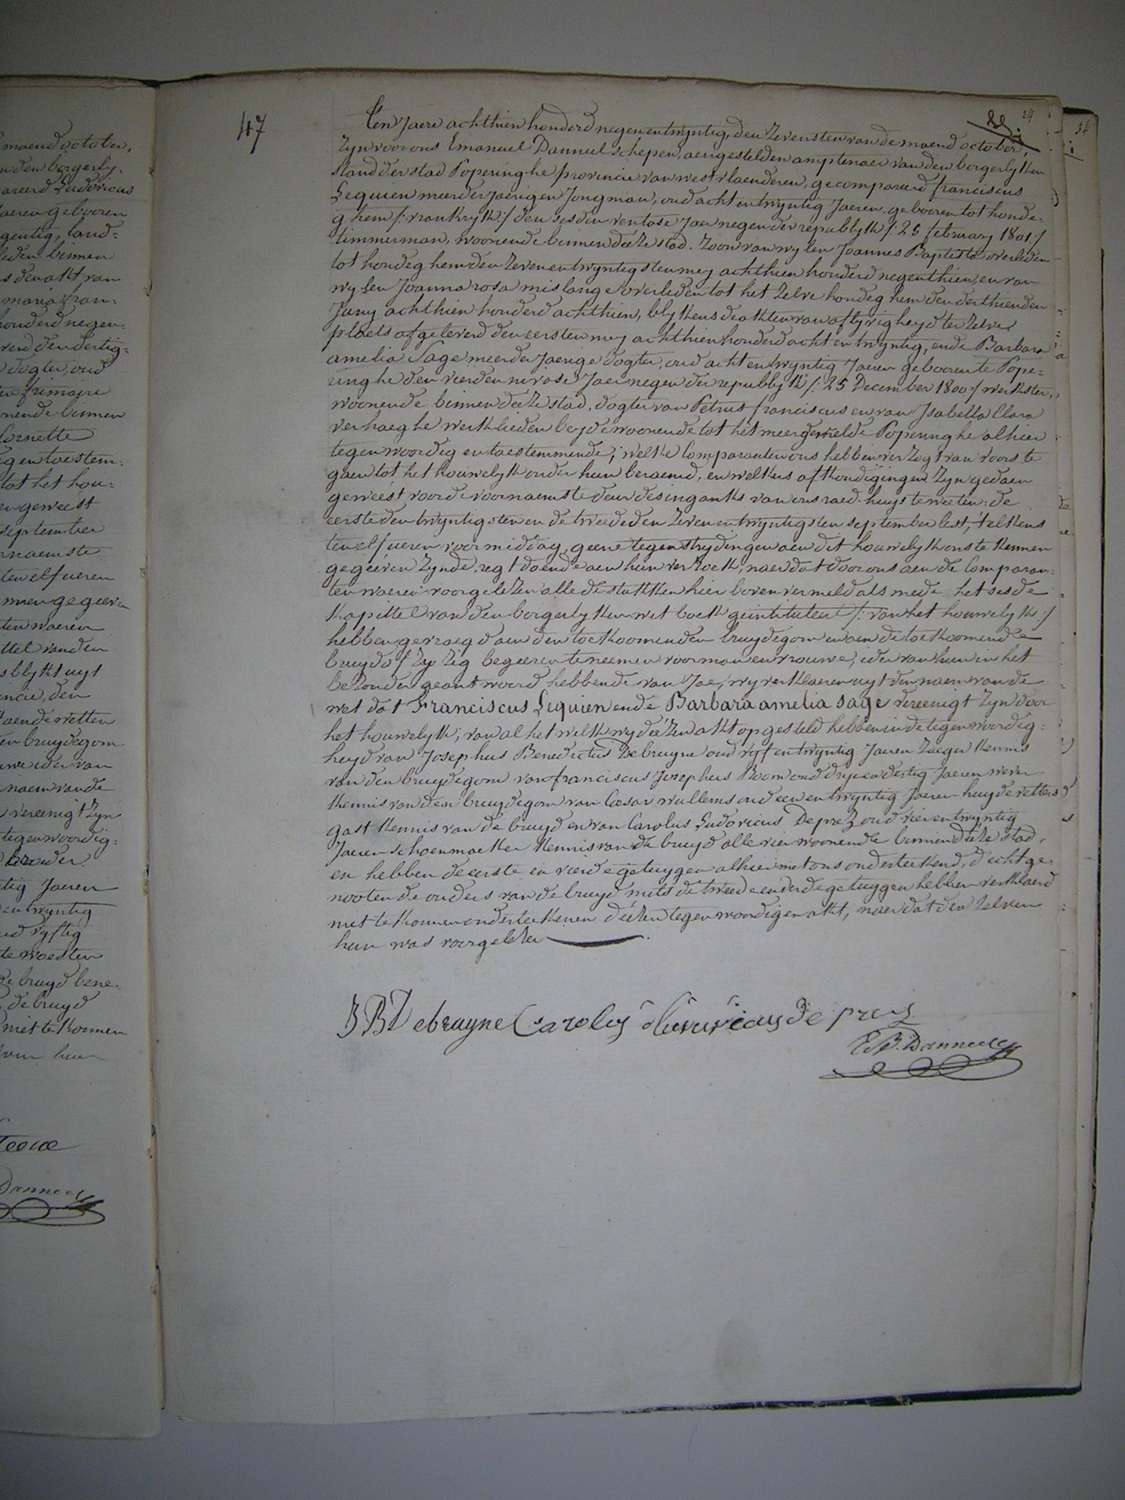 maend october,
47
Ten Jaere achthien honderd negenentwyntig, den Zevensten van de maend october,
Zyn voor ons Emanuel Danneel schepen, aengestelden amptenaer van den borgerlyken
stand der stad Poperinghe provincie van westvlaenderen, gecompareerd franciscus
Lequien meerderjaerigen Jongman, oud acht en twyntig Jaeren, gebooren tot honde-
ghem /: vrankryk :/ den sesden ventose Jaer negen der republyk /: 25 february 1801 :/
timmerman, woonende binnen deeze stad. Zoon van wylen Joannes Baptiste overleden
tot hondeghem den Zevenentwyntigsten mey achthien honderd negenthien, en van
wylen Joanna rosa mislange overleden tot het Zelve hondeghem den derthienden
Juny achthien honderd achthien, blykens de akten van aflyvigheyd te Zelver
plaets afgeleverd den eersten mey achthien honderd acht en twyntig, ende Barbara
amelia Sage meerderjaerige dogter, oud acht en twyntig Jaeren gebooren te Pope-
ringhe den vierden nivose Jaer negen der republyk /: 25 December 1800 :/ werkster,
woonende binnen deeze stad, dogter van Petrus franciscus en van Isabella Clara
verhaeghe werklieden beyde woonende tot het meergemelde Poperinghe alhier
tegenwoordig en toestemmende; welke Comparanten ons hebben verzogt van voorts te
gaen tot het houwelyk onder hun beraemd, en welkers afkondigingen Zyn gedaen
geweest voor de voornaemste deur des ingangs van ons raed-huys te weeten: de
eerste den twyntigsten en de tweede den Zevenentwyntigsten september lest, telkens
ten elf ueren voormiddag, geene tegenstrydingen aen dit houwelyk ons te kennen
gegeeven Zynde, regt doende aen hun verzoek, naer dat door ons aen de Comparan-
ten waeren voorgelezen alle de stukken hier boven vermeld als mede het sesde
kapittel van den borgerlyken wetboek geintituleert /: van het houwelyk :/
hebben gevraegd aen den toekoomenden bruydegom en aen de toekoomende
bruyd of Zy Zig begeeren te neemen voor man en vrouwe; ider van hun in het
bezonder geantwoord hebbende van Jae, wy verklaeren uyt den naem van de
wet dat Franciscus Lequien ende Barbara amelia Sage vereenigt Zyn door
het houwelyk; van al het welk wy deezen akt opgesteld hebben in de tegenwoordig-
heyd van Josephus Benedictus Debruyne oud vyf en twyntig Jaeren Zaeger kennis
van den bruydegom van franciscus Josephus Boom oud dryendertig Jaeren wever
kennis van den bruydegom van Cæsar wullems oud eenentwyntig Jaeren huydevetters
gast kennis van de bruyd en van Carolus Ludovicus Deprez oud vierentwyntig
Jaeren schoenmaeker kennis van de bruyd alle vier woonende binnen deeze stad,
en hebben de eerste en vierde getuygen alhier met ons onderteekend, d'echtge-
nooten de ouders van de bruyd mits de tweede en derde getuygen hebben verklaerd
niet te konnen onderteekenen deezen tegenwoordigen akt, naer dat den Zelven
hun was voorgelezen
J B Debruyne Carolus Luduvicus de prez
E. B. Danneel